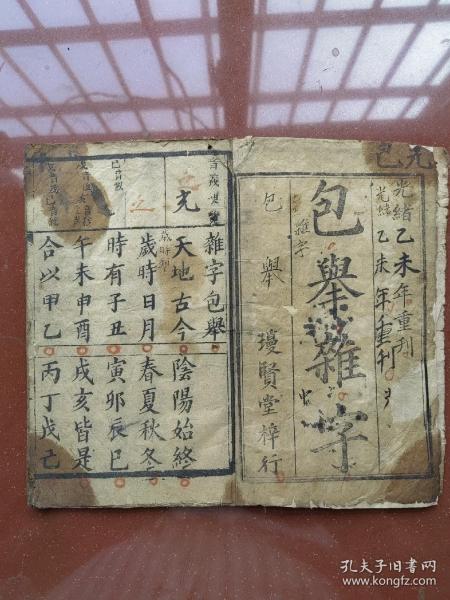 光緒乙未年重刊
光緒
乙未年重刊
包舉雜字
雜字
包舉
瓊賢堂梓行
雜字包舉
天地古今 陰陽始終
歲時日月 春夏秋冬
時有子丑 寅卯辰巳
午未申酉 戌亥皆是
合以甲乙 丙丁戊己
孔夫子旧书网
www.kongfz.com